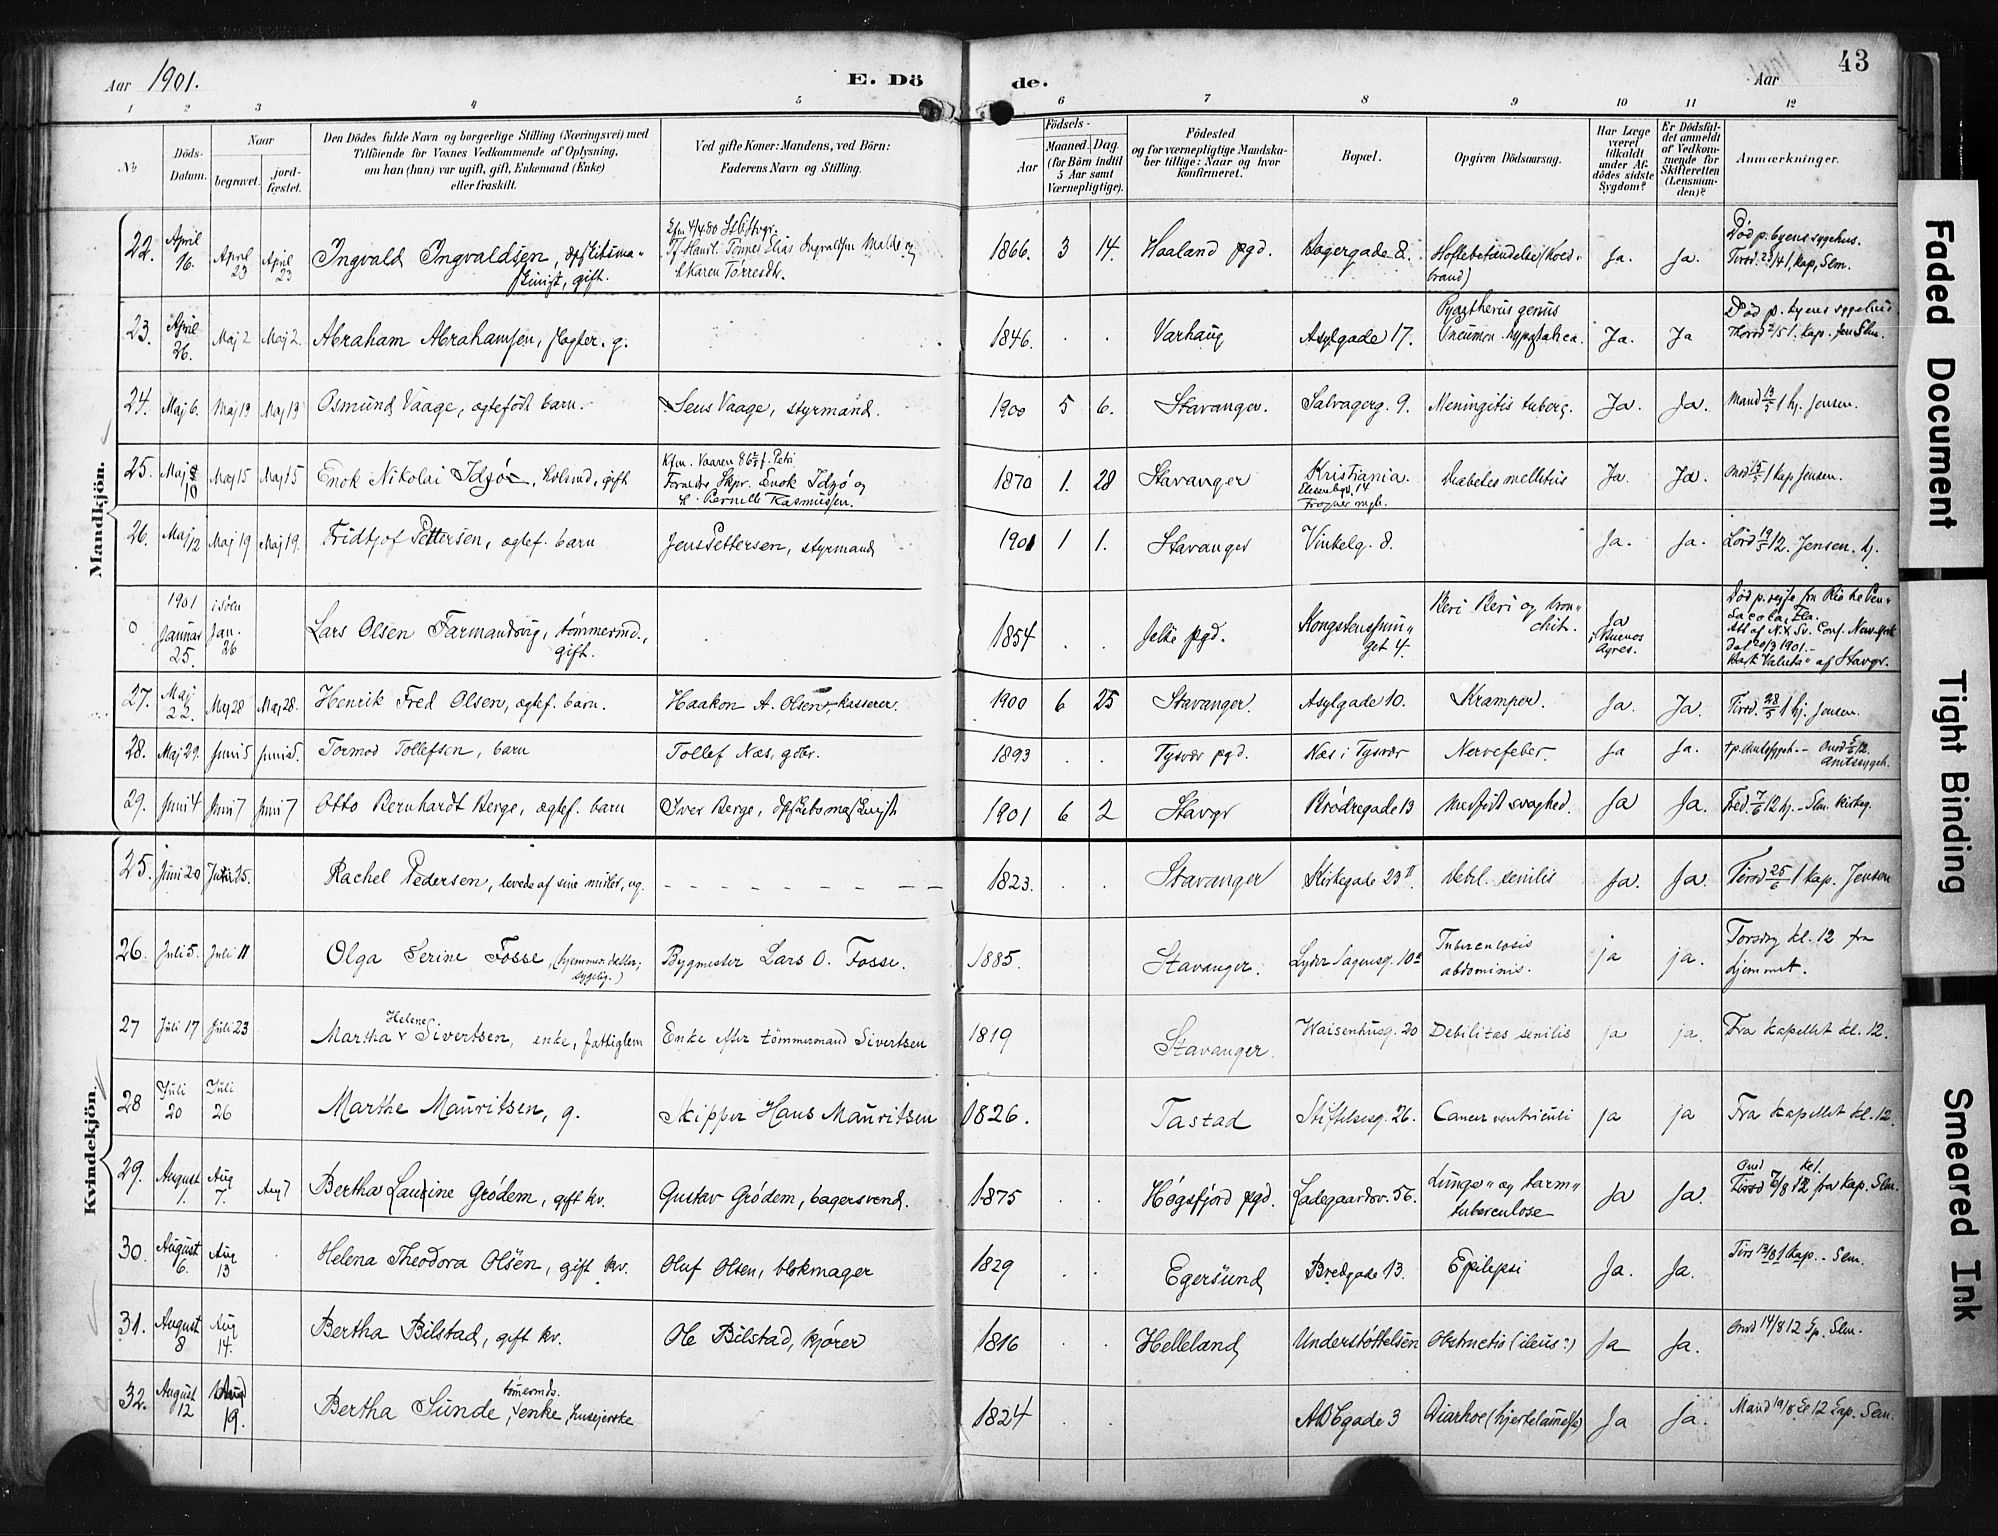 Aar 1901.
E. Dö
de.
Aar
43
1 2 3 4 5 6 7 8 9 10 11 12
No
Döds-Datum.
Naar
begravet.
jord-fæstet.
Den Dödes fulde Navn og borgerlige Stilling (Næringsvei) med
Tilföiende for Voxnes Vedkommende af Oplysning,
om han (hun) var ugift, gift, Enkemand (Enke)
eller fraskilt.
Ved gifte Koner: Mandens, ved Börn:
Faderens Navn og Stilling.
Födsels-
Aar
Maaned. Dag.
(for Börn indtil
5 Aar samt
Værnepligtige).
Födested
og for værnepligtige Mandska-
ber tillige: Naar og hvor
konfirmeret.
Bopæl.
Opgiven Dödsaarsag.
Har Læge
været
tilkaldt
under Af-
dödes sidste
Sygdom?
Er Dödsfal-
det anmeldt
af Vedkom-
mende for
Skifteretten
(Lensman-
den)?
Anmærkninger.
Mandkjön.
22. April 16. April 23 April 23 Ingvald Ingvaldsen, gift. 1866. 3 14. Haaland pgd. Bagergade 8. Hoftebetændelse (Koldbrand) Ja. Ja. Død p. byens sygehus.
23. April 26. Maj 2 Maj 2. Abraham Abrahamsen, g. 1846. . . Varhaug Asylgade 17. Ja. Ja
24. Maj 6. Maj 13 Maj 13 Osmund Vaage, ægtefødt barn. Jens Vaage, styrmand. 1900 5 6. Stavanger. Salvagerg. 9. Meningitis tuberc. Ja. Ja. Mand 13/5 1 hj. Jensen.
25. Maj 10 Maj 15 Maj 15 Enok Nikolai Idsø, gift Forældre Skpr. Enok Idsø og h. Pernille Rasmussen. 1870 1. 28 Stavanger Kristiania. Diabetes mellitus Ja. Ja. Onsd 15/5 1 kap Jensen.
26. Maj 12 Maj 19 Maj 19. Fridtjof Pettersen, ægtef. barn Jens Pettersen, styrmand 1901 1 1. Stavanger Vinkelg. 8. Ja. Ja. 12. Jensen. hj.
0 1901 Januar 25. i søen Jan. 26 Lars Olsen Farmandsvig, tømmermd., gift. 1854 . . Jelse pgd. Beri Beri og bronchit. Ja i Buenos Ayres. Død p. rejse fra Rio til Pensacola, Fla. 20/3 1901. Bark "Valuta" af Stavgr.
27. Maj 22. Maj 28 Maj 28. Henrik Fred Olsen, ægtef. barn. Haakon A. Olsen, kasserer. 1900 6 25 Stavanger. Asylgade 10. Kramper. Ja. Ja. Tirsd. 28/5 1 hj. Jensen.
28. Maj 29. Juni 5 Juni 5. Tormod Tollefsen, barn Tollef Næs, gdbr. 1893 . . Tysvær pgd. Næs i Tysvær Nervefeber. Ja Ja. Onsd 5/6 12. Amtssygeh.
29. Juni 4 Juni 7 Juni 7 Otto Bernhardt Berge, ægtef. barn Iver Berge, 1901 6 2 Stavgr Brødregade 13 Medfødt svaghed. Ja Ja. Fred. 7/6 12 hj.
Kvindekjön.
25. Juni 20 Juni 25. Rachel Pedersen, levede af sine midler, ug. - - - - - - - - 1823. . . Stavanger Kirkegade 23 II. Debil. senilis Ja. Ja. Tirsd 25/6 1 kap. Jensen
26. Juli 5. Juli 11 Olga Serine Fosse, (hjemmev. datter; sygelig.) Bygmester Lars O. Fosse. 1885. Stavanger. Lyder Sagensg. 10a Tuberculosis abdominis. ja ja. Torsdag kl. 12 fra hjemmet.
27 Juli 17 Juli 23 Martha Helene Sivertsen, enke, fattiglem Enke efter tømmermand Sivertsen 1819 Stavanger. Waisenhusg. 20 Debilitas senilis ja ja. Fra kapellet kl. 12.
28 Juli 20 Juli 26 Marthe Mauritsen, g. Skipper Hans Mauritsen 1826. Tastad Stiftelsesg. 26. Cancer ventriculi ja ja Fra kapellet kl. 12.
29. August 1. Aug 7. Aug 7 Bertha Laurine Grødem, gift kv. Gustav Grødem, bagersvend. 1875 . . Høgsfjord pgd. Ladegaardsv. 56. Lunge- og tarmtuberculose Ja Ja. Onsd Tirsd 7/8 kl. 12 fra kap. Slm.
30. August 6. Aug 13 Helena Theodora Olsen, gift kv. Oluf Olsen, blokmager 1829 . . Egersund Bredgade 13. Epilepsi Ja. Ja. Tirs 13/8 1 kap. Slm.
31. August 8 Aug 14. Bertha Bilstad, gift kv. Ole Bilstad, kjører 1816 . . Helleland Understøttelsen Obstructio (ileus?) Ja Ja. Onsd 14/8 12 Slm.
32. August 12 Aug 19. Bertha Sunde, tømermds. enke, husejerske 1824 . . ABCgade 3 Diarhoe (hjertelamelse) Ja Ja. Mand 19/8 kl 12 Kap. Slm.
Faded Document
Tight Binding
Smeared Ink